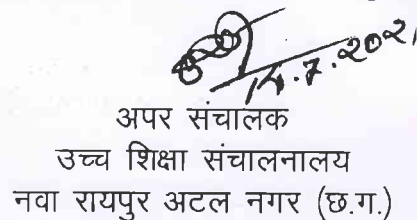 14.7.2021
अपर संचालक
उच्च शिक्षा संचालनालय
नवा रायपुर अटल नगर (छ.ग.)